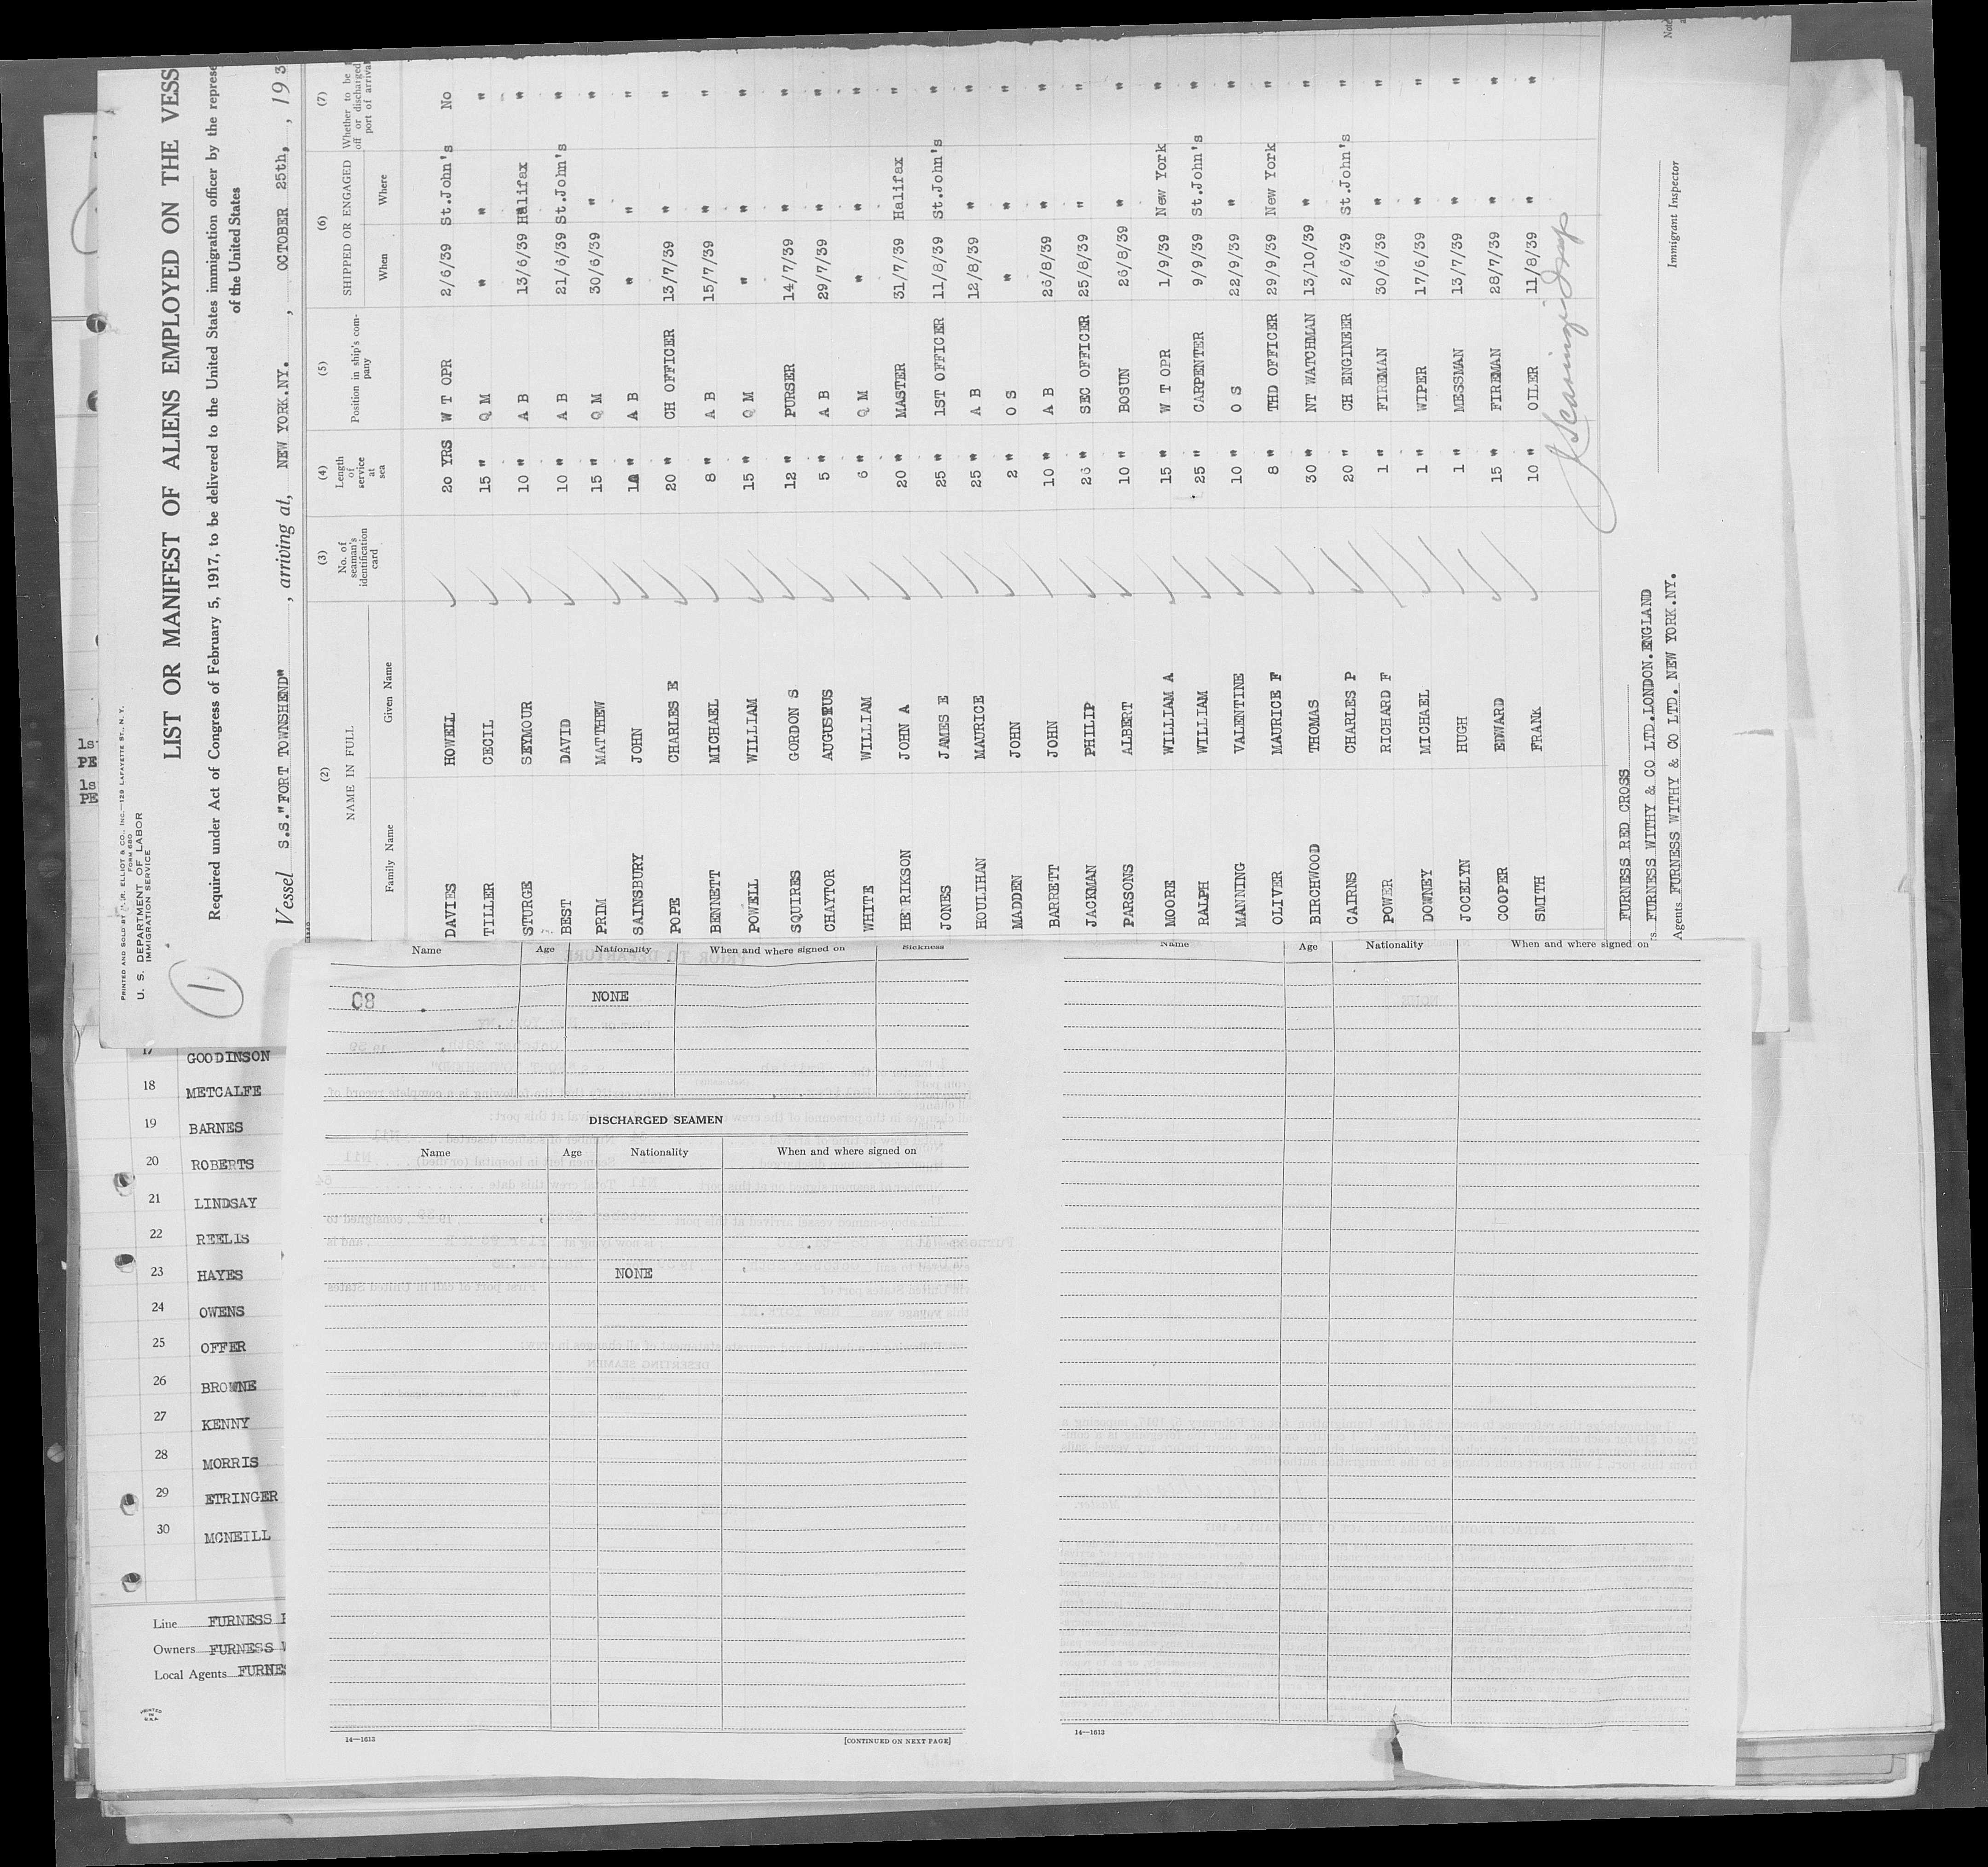 PRINTED AND SOLD BY M. R. ELLIOT & CO., INC.—129 LAFAYETTE ST., N.Y.
FORM 680
U. S. DEPARTMENT OF LABOR
IMMIGRATION SERVICE
1
LIST OR MANIFEST OF ALIENS EMPLOYED ON THE VESS
Required under Act of Congress of February 5, 1917, to be delivered to the United States immigration officer by the represe
of the United States
Vessel S.S."FORT TOWNSHEND" , arriving at, NEW YORK.NY. , OCTOBER 25th, , 193
(2) (3) (4) (5) (6) (7)
NAME IN FULL No. of seaman's identification card Length of service at sea Position in ship's company SHIPPED OR ENGAGED Whether to be off or discharged port of arrival
Family Name Given Name When Where
DAVIES HOWELL 20 YRS W T OPR 2/6/39 St.John's No
TILLER CECIL 15 " Q M " " "
STURGE SEYMOUR 10 " A B 13/6/39 Halifax "
BEST DAVID 10 " A B 21/6/39 St.John's "
PRIM MATTHEW 15 " Q M 30/6/39 " "
SAINSBURY JOHN 10 " A B " " "
POPE CHARLES E 20 " CH OFFICER 13/7/39 " "
BENNETT MICHAEL 8 " A B 15/7/39 " "
POWELL WILLIAM 15 " Q M " " "
SQUIRES GORDON S 12 " PURSER 14/7/39 " "
CHAYTOR AUGUSTUS 5 " A B 29/7/39 " "
WHITE WILLIAM 6 " Q M " " "
HENRIKSON JOHN A 20 " MASTER 31/7/39 Halifax "
JONES JAMES E 25 " 1ST OFFICER 11/8/39 St.John's "
HOULIHAN MAURICE 25 " A B 12/8/39 " "
MADDEN JOHN 2 " O S " " "
BARRETT JOHN 10 " A B 26/8/39 " "
JACKMAN PHILIP 26 " SEC OFFICER 25/8/39 " "
PARSONS ALBERT 10 " BOSUN 26/8/39 " "
MOORE WILLIAM A 15 " W T OPR 1/9/39 New York "
RALPH WILLIAM 25 " CARPENTER 9/9/39 St.John's "
MANNING VALENTINE 10 " O S 22/9/39 " "
OLIVER MAURICE F 8 " THD OFFICER 29/9/39 New York "
BIRCHWOOD THOMAS 30 " NT WATCHMAN 13/10/39 " "
CAIRNS CHARLES P 20 " CH ENGINEER 2/6/39 St.John's "
POWER RICHARD F 1 " FIREMAN 30/6/39 " "
DOWNEY MICHAEL 1 " WIPER 17/6/39 " "
JOCELYN HUGH 1 " MESSMAN 13/7/39 " "
COOPER EDWARD 15 " FIREMAN 28/7/39 " "
SMITH FRANK 10 " OILER 11/8/39 " "
FURNESS RED CROSS
FURNESS WITHY & CO LTD.LONDON.ENGLAND
Agents FURNESS WITHY & CO LTD. NEW YORK.NY.
Immigrant Inspector
Note
1s
PE
1s
PE
Name Age Nationality When and where signed on Sickness
08 NONE
DISCHARGED SEAMEN
Name Age Nationality When and where signed on
NONE
14—1613 [CONTINUED ON NEXT PAGE]
Name Age Nationality When and where signed on
14—1613
17 GOODINSON
18 METCALFE
19 BARNES
20 ROBERTS
21 LINDSAY
22 REELIS
23 HAYES
24 OWENS
25 OFFER
26 BROWNE
27 KENNY
28 MORRIS
29 ETRINGER
30 MCNEILL
Line FURNESS
Owners FURNESS
Local Agents FURNES
PRINTED IN U.S.A.